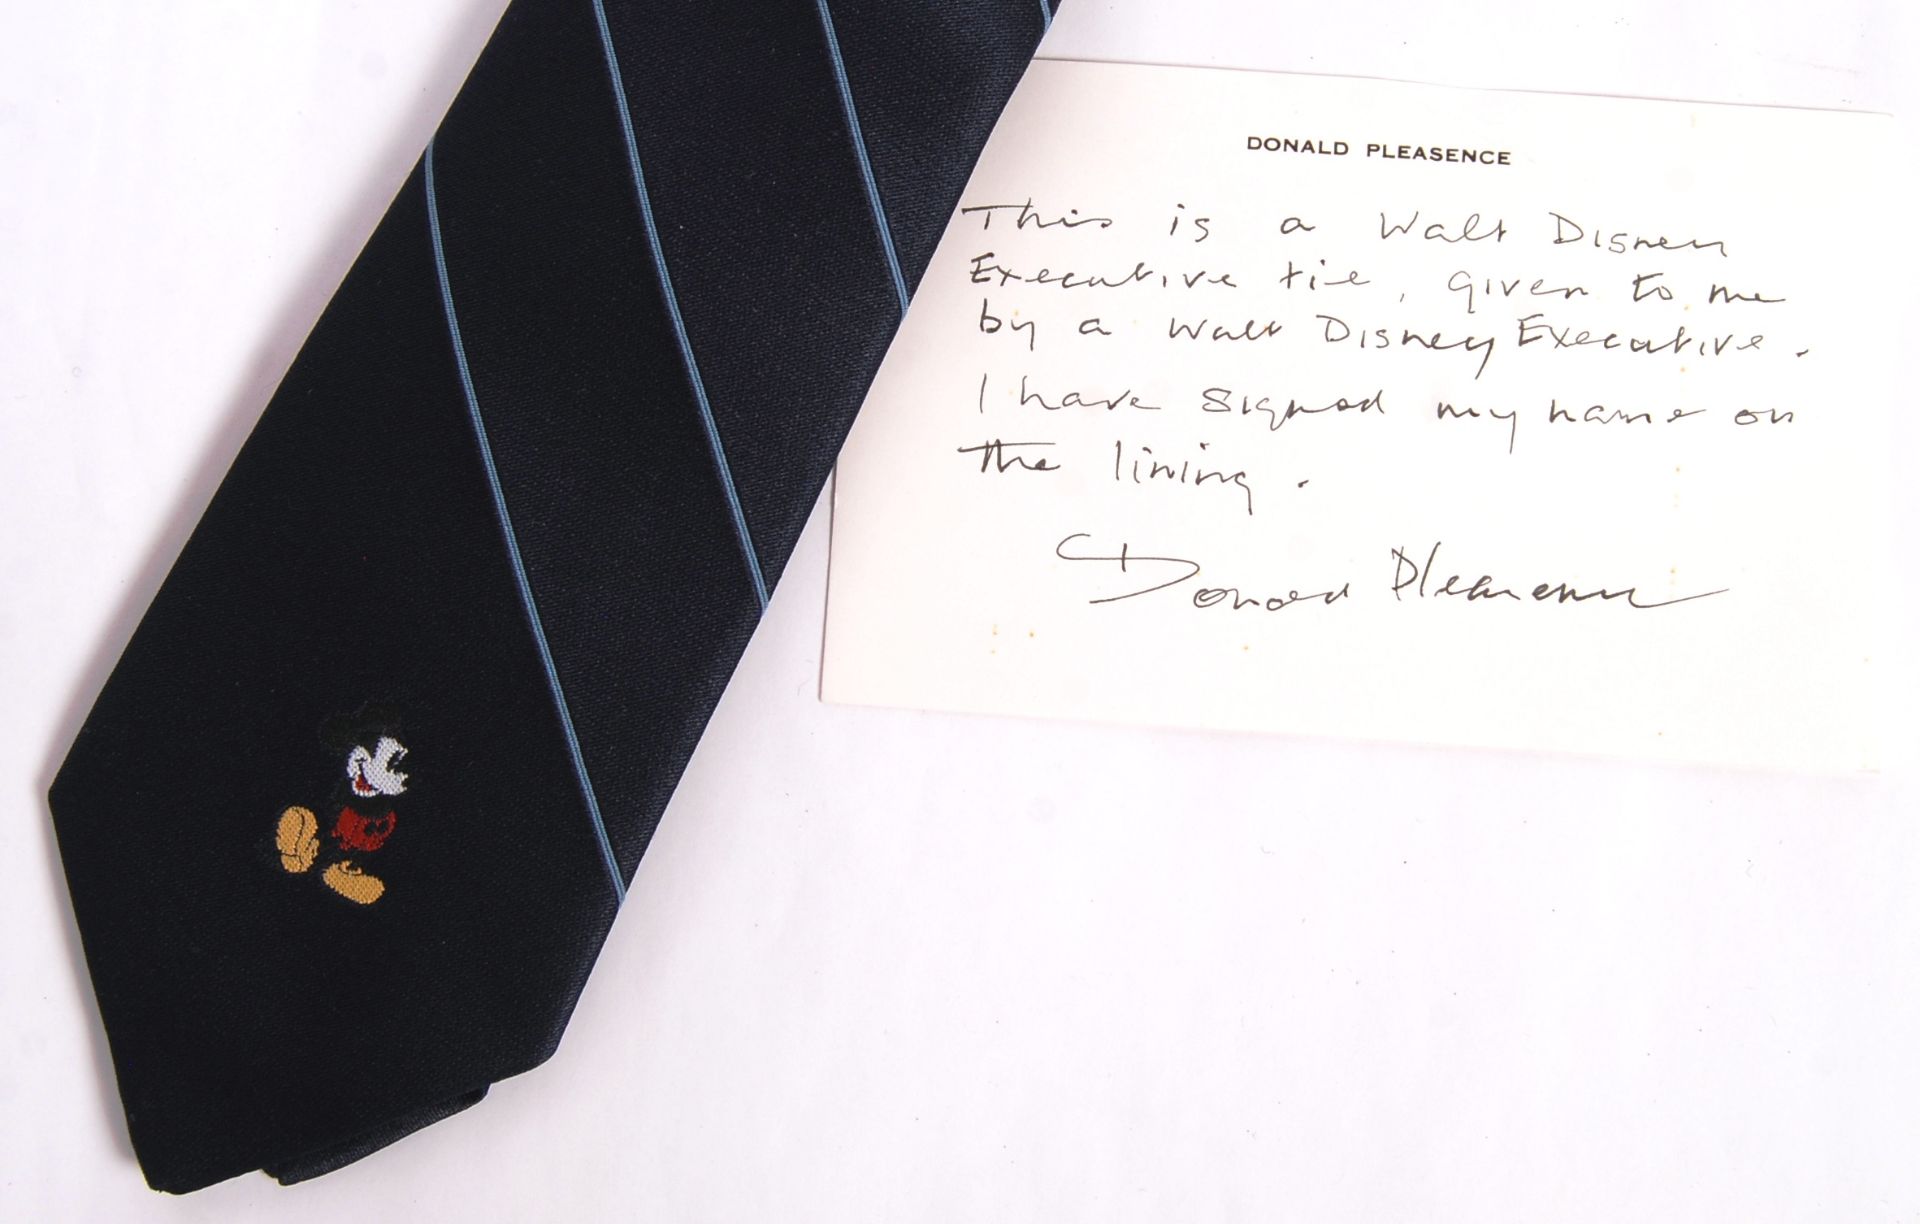 DONALD PLEASENCE
This is a Walt Disney
Executive tie, given to me
by a Walt Disney Executive.
I have signed my name on
the lining.
Donald Pleasence